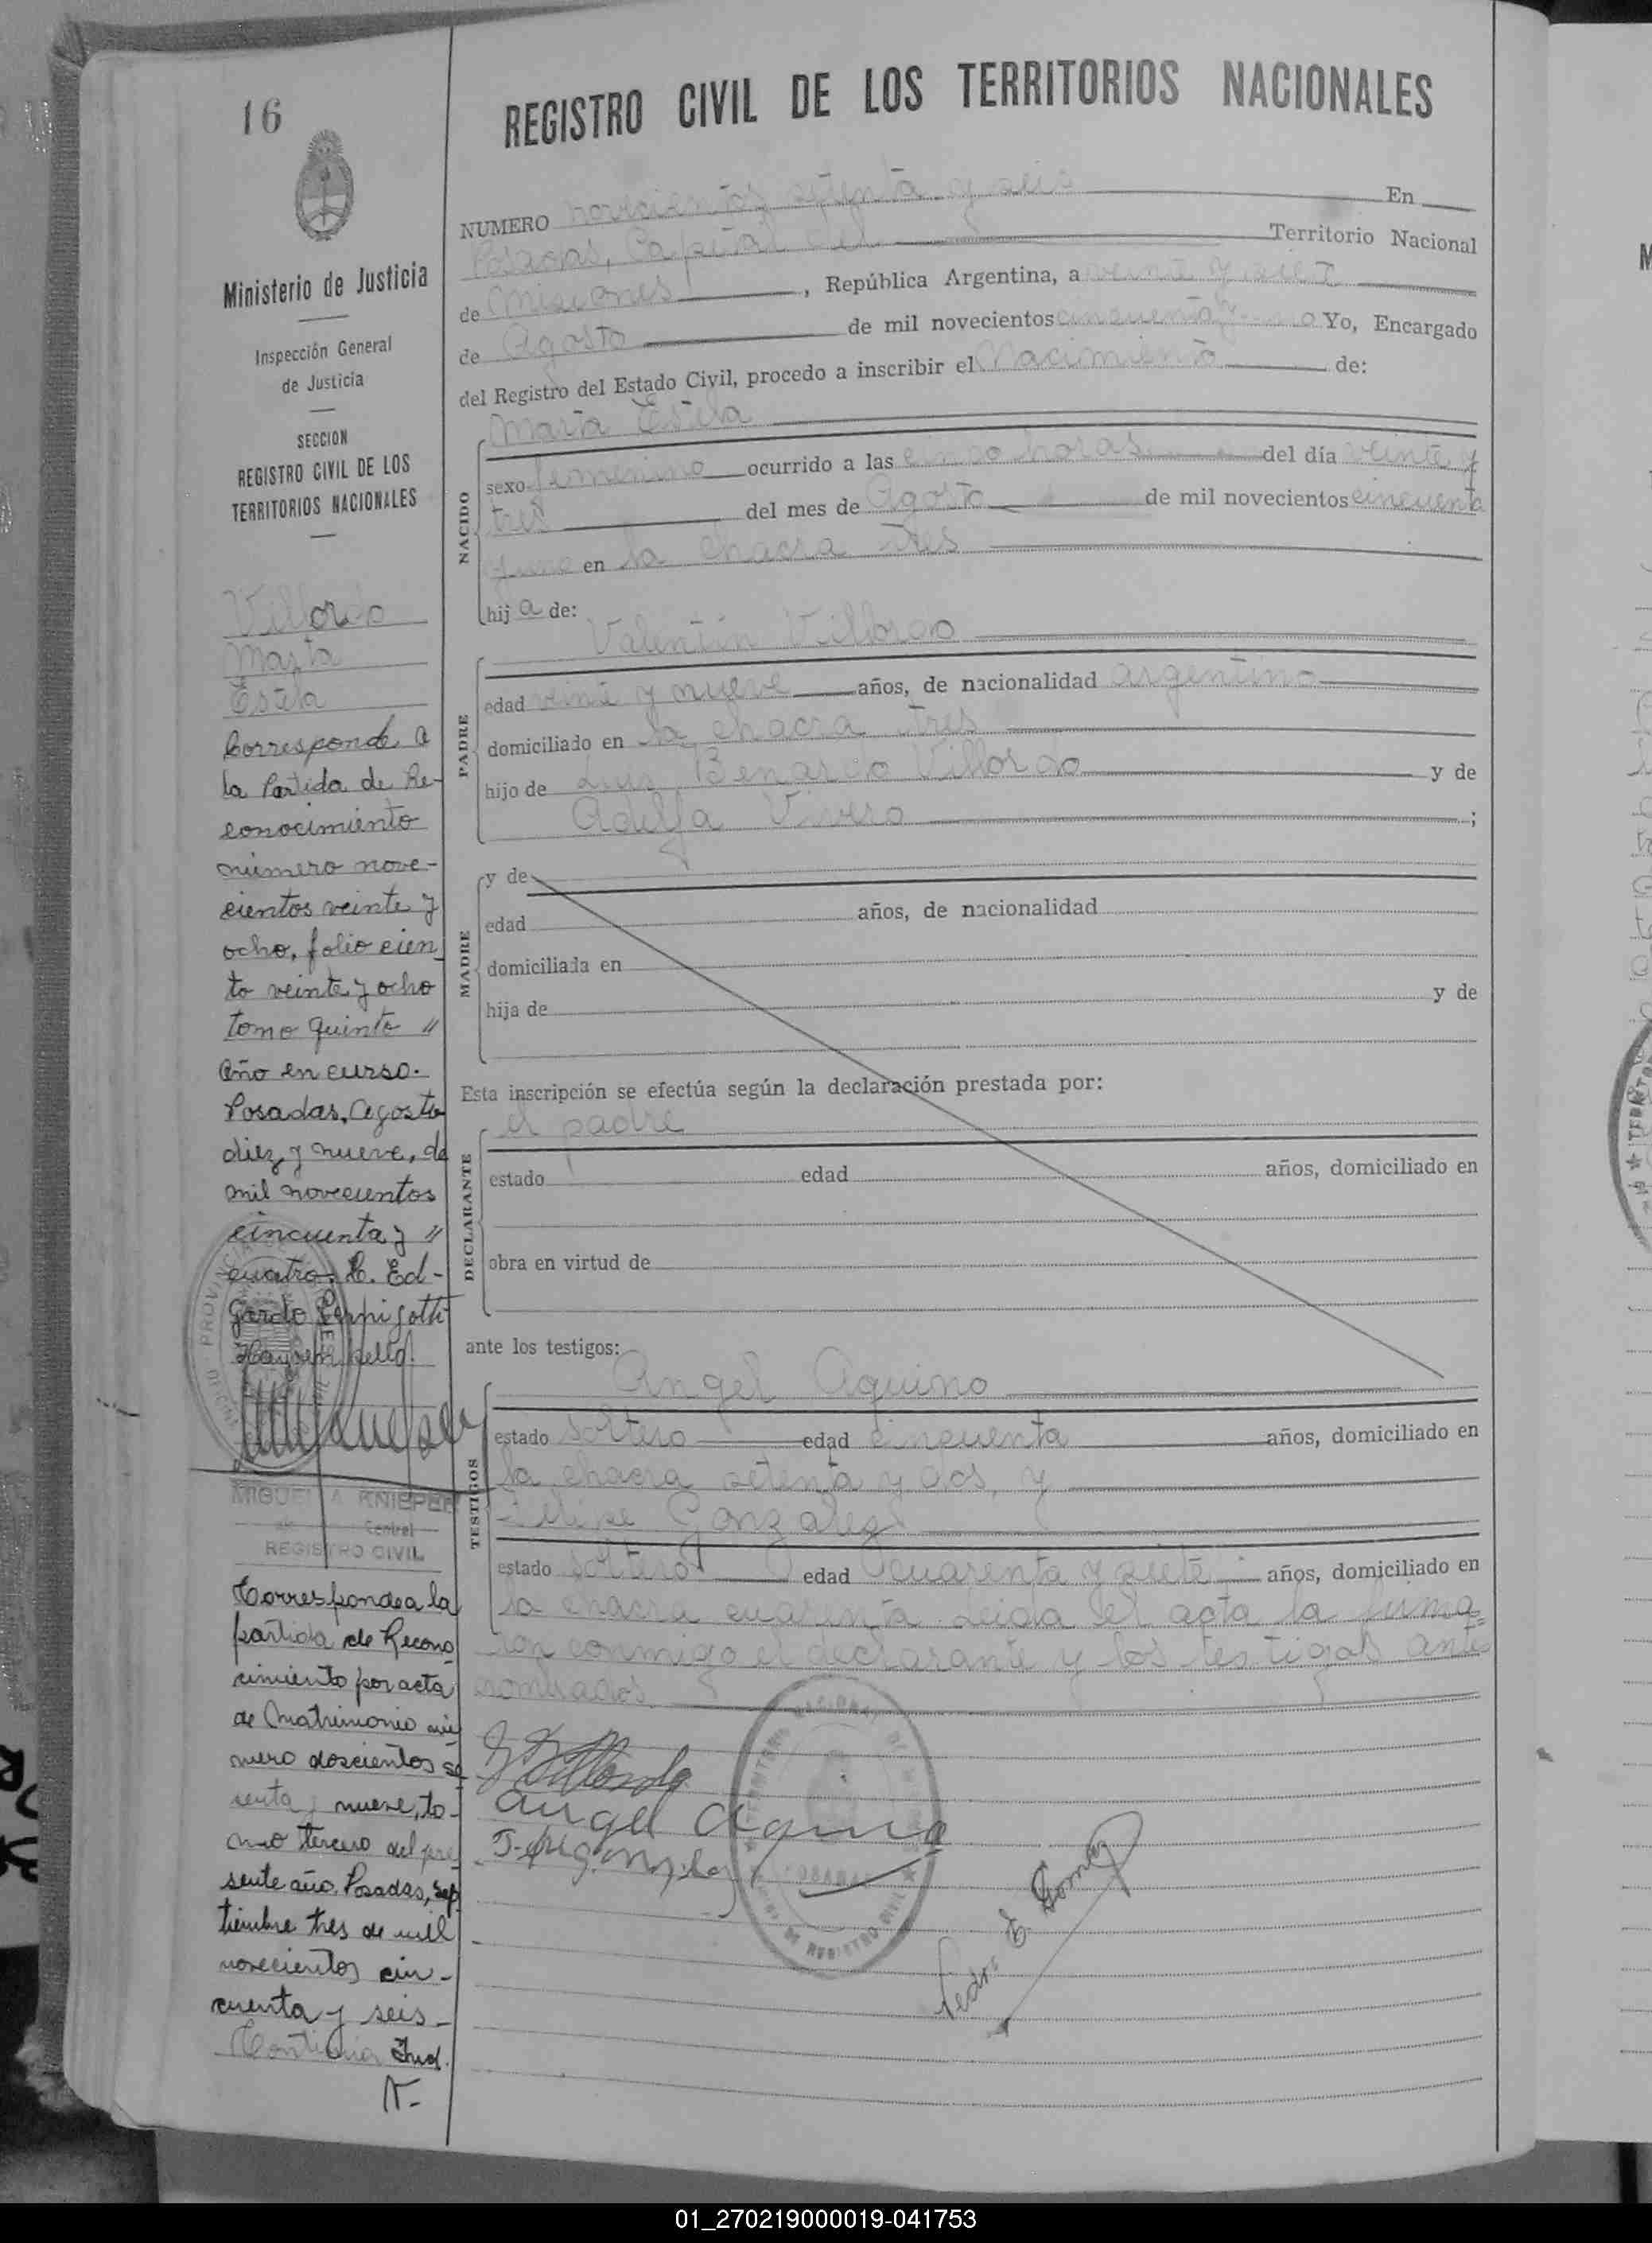 16
Ministerio de Justicia
Inspección General
de Justicia
SECCION
REGISTRO CIVIL DE LOS
TERRITORIOS NACIONALES
Villordo
Marta
Estela
Corresponde a
la Partida de Re-
conocimiento
número nove-
cientos veinte y
ocho, folio cien
to veinte y ocho
tomo quinto "
año en curso.
Posadas, Agosto
diez y nueve, de
mil novecientos
cincuenta y "
cuatro. Ed-
gardo
MIGUEL A. KNIEPER
Central
REGISTRO CIVIL
Corresponde a la
partida de Recono
cimiento por acta
de Matrimonio nú
mero doscientos se
senta y nueve, to-
mo tercero del pre
sente año. Posadas, Sep
tiembre tres de mil
novecientos cin-
cuenta y seis -
REGISTRO CIVIL DE LOS TERRITORIOS NACIONALES
NUMERO novecientos setenta y seis En
Posadas, Capital del Territorio Nacional
de Misiones, República Argentina, a veinte y siete
de Agosto de mil novecientos cincuenta y uno Yo, Encargado
del Registro del Estado Civil, procedo a inscribir el Nacimiento de:
Marta Estela
NACIDO
sexo femenino ocurrido a las cinco horas del día veinte y
tres del mes de Agosto de mil novecientos cincuenta
y uno en la chacra tres
hij a de:
Valentin Villordo
PADRE
edad veinte y nueve años, de nacionalidad argentino
domiciliado en la chacra tres
hijo de Luis Villordo y de
Adelfa Vivero ;
MADRE
y de
edad años, de nacionalidad
domiciliada en
hija de y de
Esta inscripción se efectúa según la declaración prestada por:
el padre
DECLARANTE
estado edad años, domiciliado en
obra en virtud de
ante los testigos:
Angel Aquino
TESTIGOS
estado soltero edad cincuenta años, domiciliado en
la chacra setenta y dos, y
Felipe Gonzalez
estado soltero edad cuarenta y siete años, domiciliado en
la chacra cuarenta. Leida el acta la firma=
ron conmigo el declarante y los testigos ante
nombrados.
Villordo
Angel Aquino
Pedro E. Gomez
01_270219000019-041753